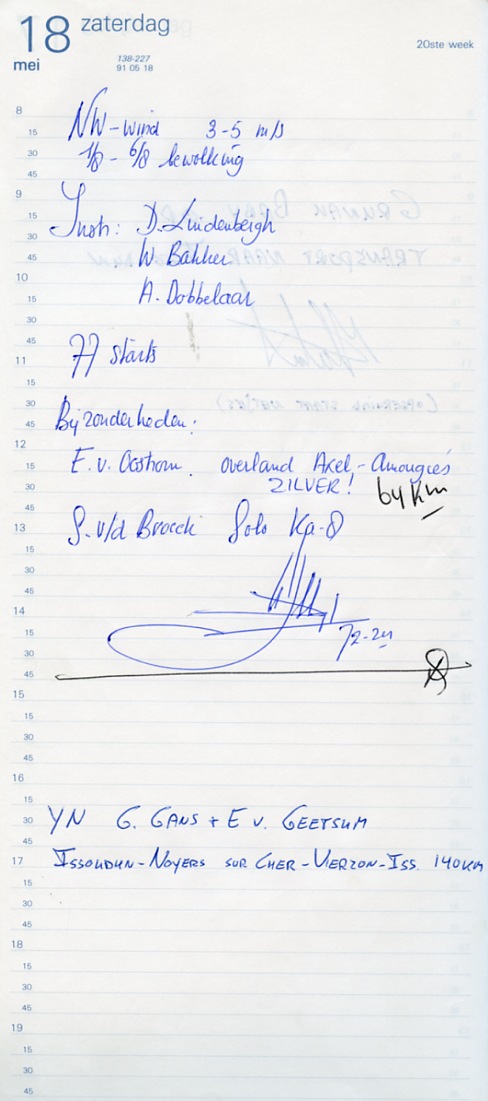 18 zaterdag
mei
138-227
91 05 18
20ste week
8
15
NW-wind 3-5 m/s
30
1/8 - 6/8 bewolking
45
9
15
Instr: D. Luidenbergh
30
45
W. Bakker
10
15
A. Dobbelaar
30
45
77 starts
11
15
30
Bijzonderheden:
45
12
15
E. v. Oostrom. overland Axel-Amougies
30
ZILVER! 64 km
45
13
S. v/d Broecke Solo Ka-8
15
30
45
14
15
30
45
15
15
30
45
16
15
30
YN G. GANS + E v. GEETSUM
45
17
ISSOUDUN-NOYERS SUR CHER-VIERZON-ISS. 140 KM
15
30
45
18
15
30
45
19
15
30
45